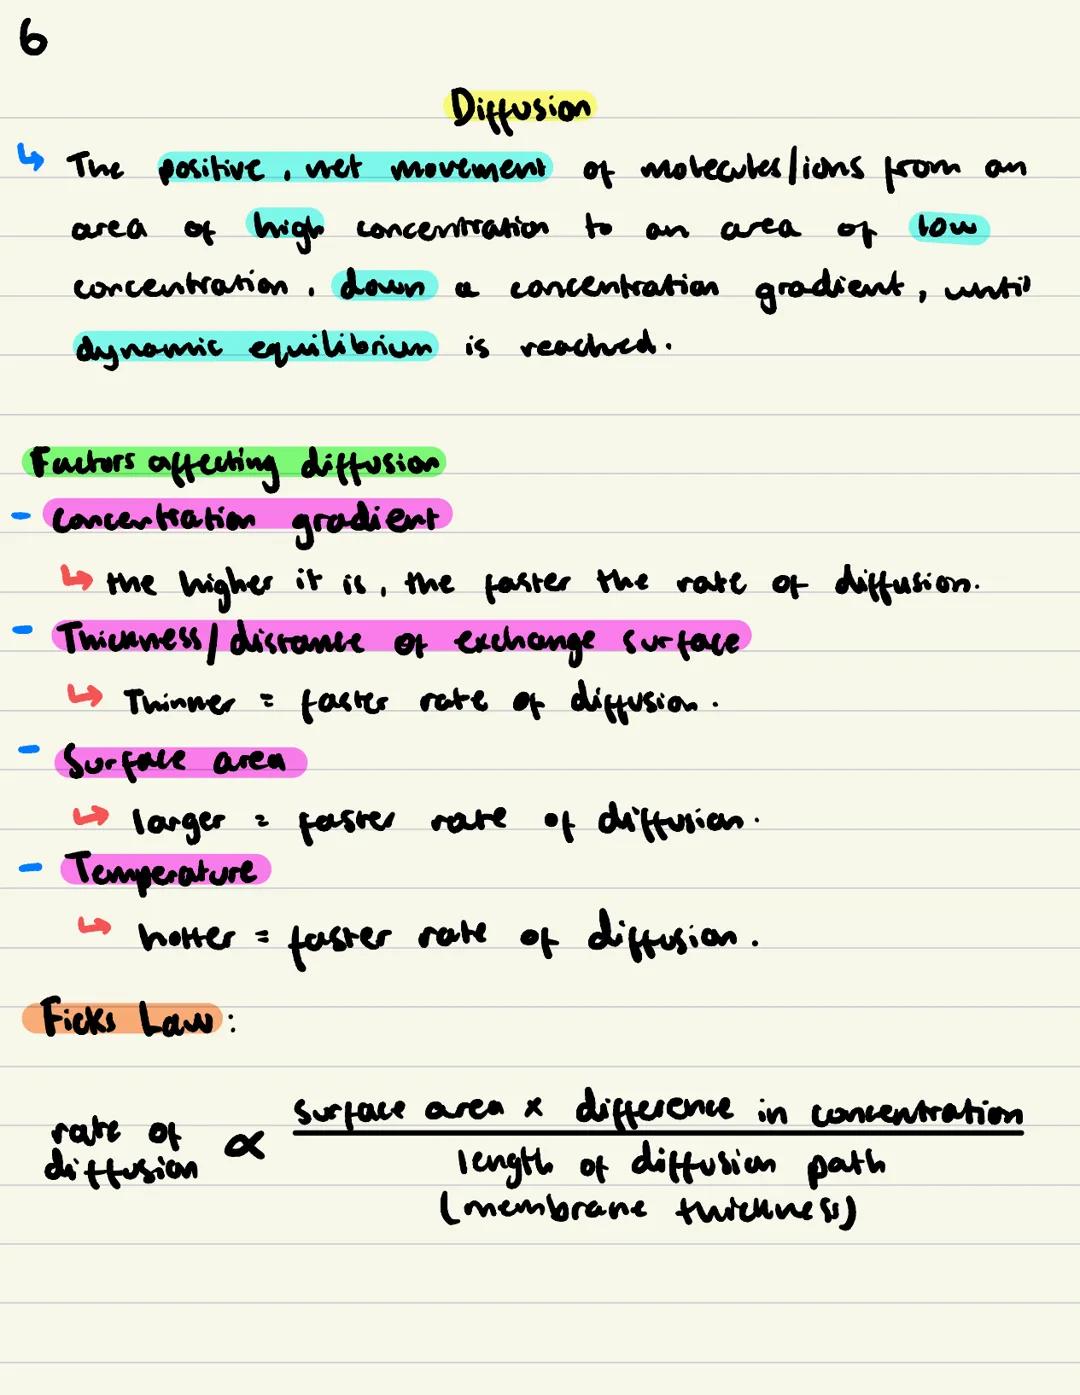 6
Diffusion
↳ The positive, net movement of molecules/ions from an
area of high concentration to an area of low
concentration, down a concentration gradient, until
dynamic equilibrium is reached.
Factors affecting diffusion
- Concentration gradient
↳ the higher it is, the faster the rate of diffusion.
- Thickness/distance of exchange surface
↳ Thinner = faster rate of diffusion.
- Surface area
↳ larger = faster rate of diffusion.
- Temperature
↳ hotter = faster rate of diffusion.
Ficks Law:
surface area x difference in concentration
rate of ∝
diffusion
length of diffusion path
(membrane thickness)